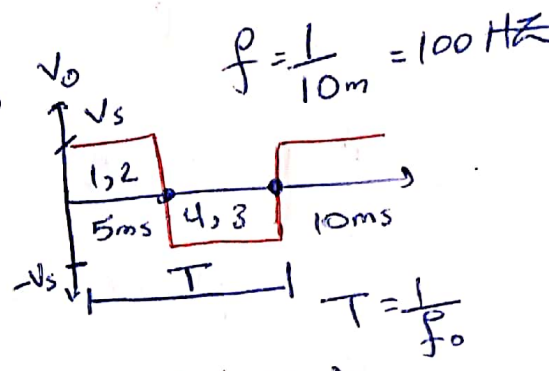 f = 1/10m = 100 Hz
Vo
Vs
1,2
5ms
4,3
10ms
-Vs
T
T = 1/fo